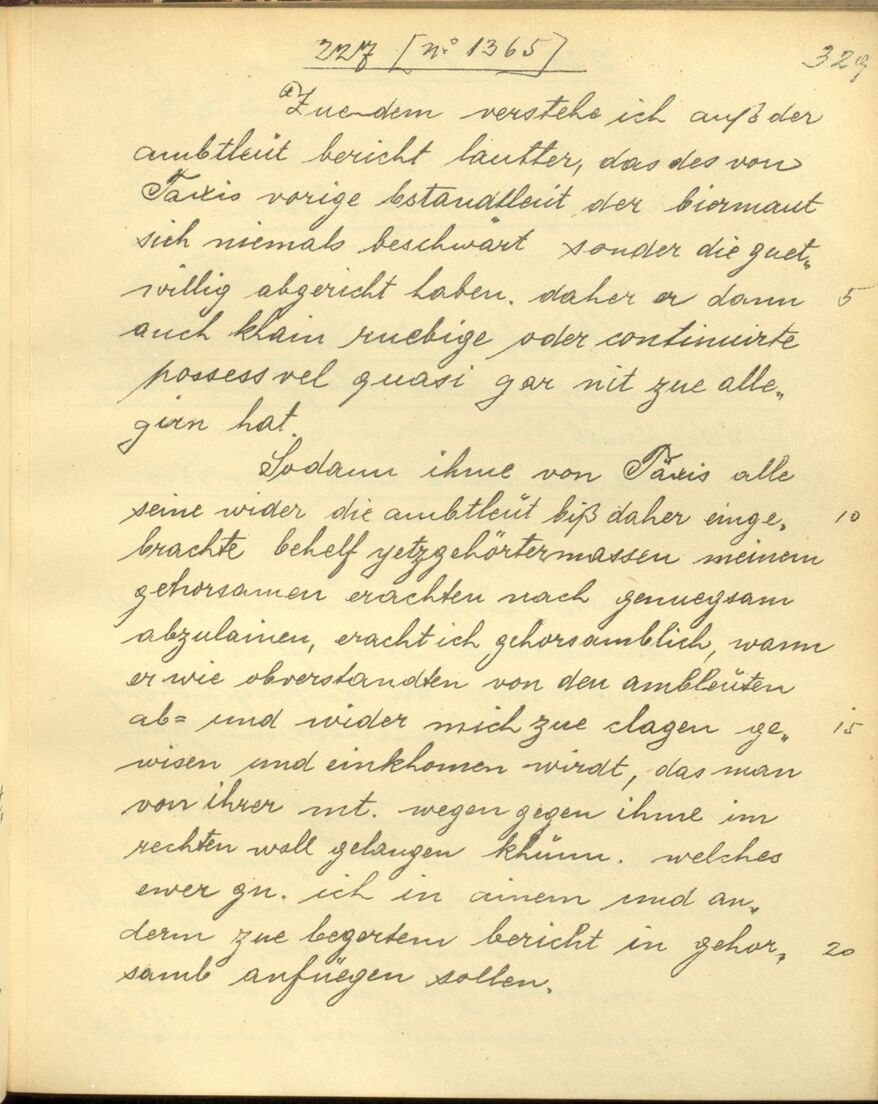 227 [n° 1365]
329
Zue dem verstehe ich auß der
ambtleüt bericht lautter, das des von
Täxis vorige bstandtleüt der biermaut
sich niemals beschwärt sonder die guet„
willig abgericht haben. daher er dann 5
auch khain ruebige oder continuirte
possess vel quasi gar nit zue alle„
girn hat.
Sodann ihme von Täxis alle
seine wider die ambtleüt biß daher einge„ 10
brachte behelf yetzgehörtermassen meinem
gehorsamen erachten nach genuegsam
abzulainen, eracht ich gehorsamblich, wann
er wie obverstandten von den ambleüten
ab= und wider mich zue clagen ge„ 15
wisen und einkhomen wirdt, das man
von ihrer mt. wegen gegen ihme im
rechten woll gelangen khünn. welches
ewer gn. ich in ainem und an„
derm zue begertem bericht in gehor„ 20
samb anfüegen sollen.